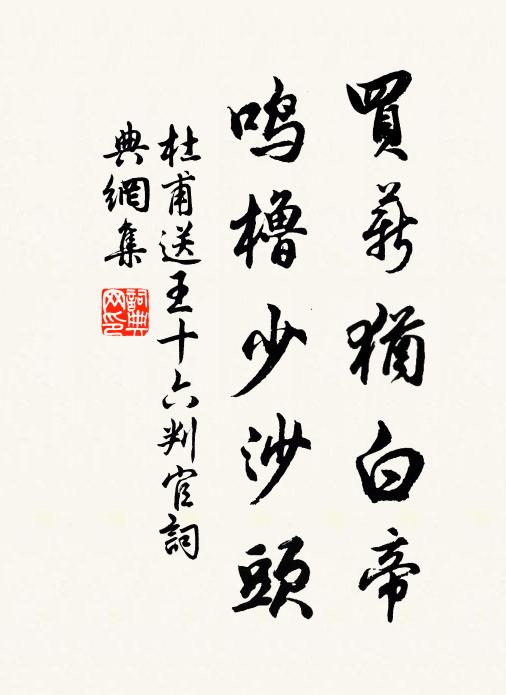 買薪猶白帝
鳴櫓少沙頭
杜甫送王十六判官詞
典網集
詞典網印